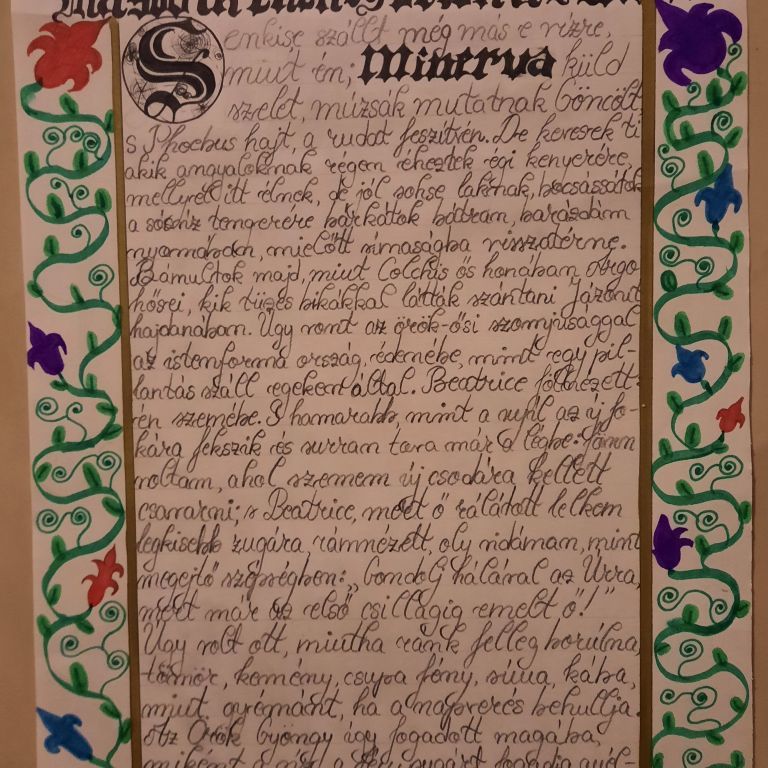 Senkise szállt még más e vízre,
mint én; Minerva küld
szelet, múzsák mutatnak Göncölt
s Phoebus hajt, a rudat feszítvén. De kevesek ti
akik angyaloknak régen éheztek égi kenyerére,
mellyel itt élnek, de jól sohse laknak, bocsássátok
a sósvíz tengerére bárkátok bátram, barázdám
nyomában, mielőtt simaságba visszatérne.
Bámultok majd, mint Colchis ős honában Argo
hősei, kik tüzes bikákkal látták szántani Jázont
hajdanában. Úgy vont az örök-ősi szomjúsággal
az istenforma ország, édenébe, mint egy pil-
lantás száll egeken által. Beatrice fölnézett:
én szemébe. S hamarabb, mint a nyíl az új fo-
kára fekszik és surran tova már a légbe:
voltam, ahol szemem új csodára kellett
csavarni; s Beatrice, mert ő rálátott lelkem
legkisebb zugára, rámnézett, oly vidáman, mint
megejtő szépségben: „Gondolj hálával az Úrra,
mert már az első csillagig emelt ő!"
Úgy volt ott, mintha ránk felleg borulna,
tömör, kemény, csupa fény, síma, kába,
mint gyémánt, ha a napverés behullja.
Az Örök Gyöngy így fogadott magába,
miként a víz a